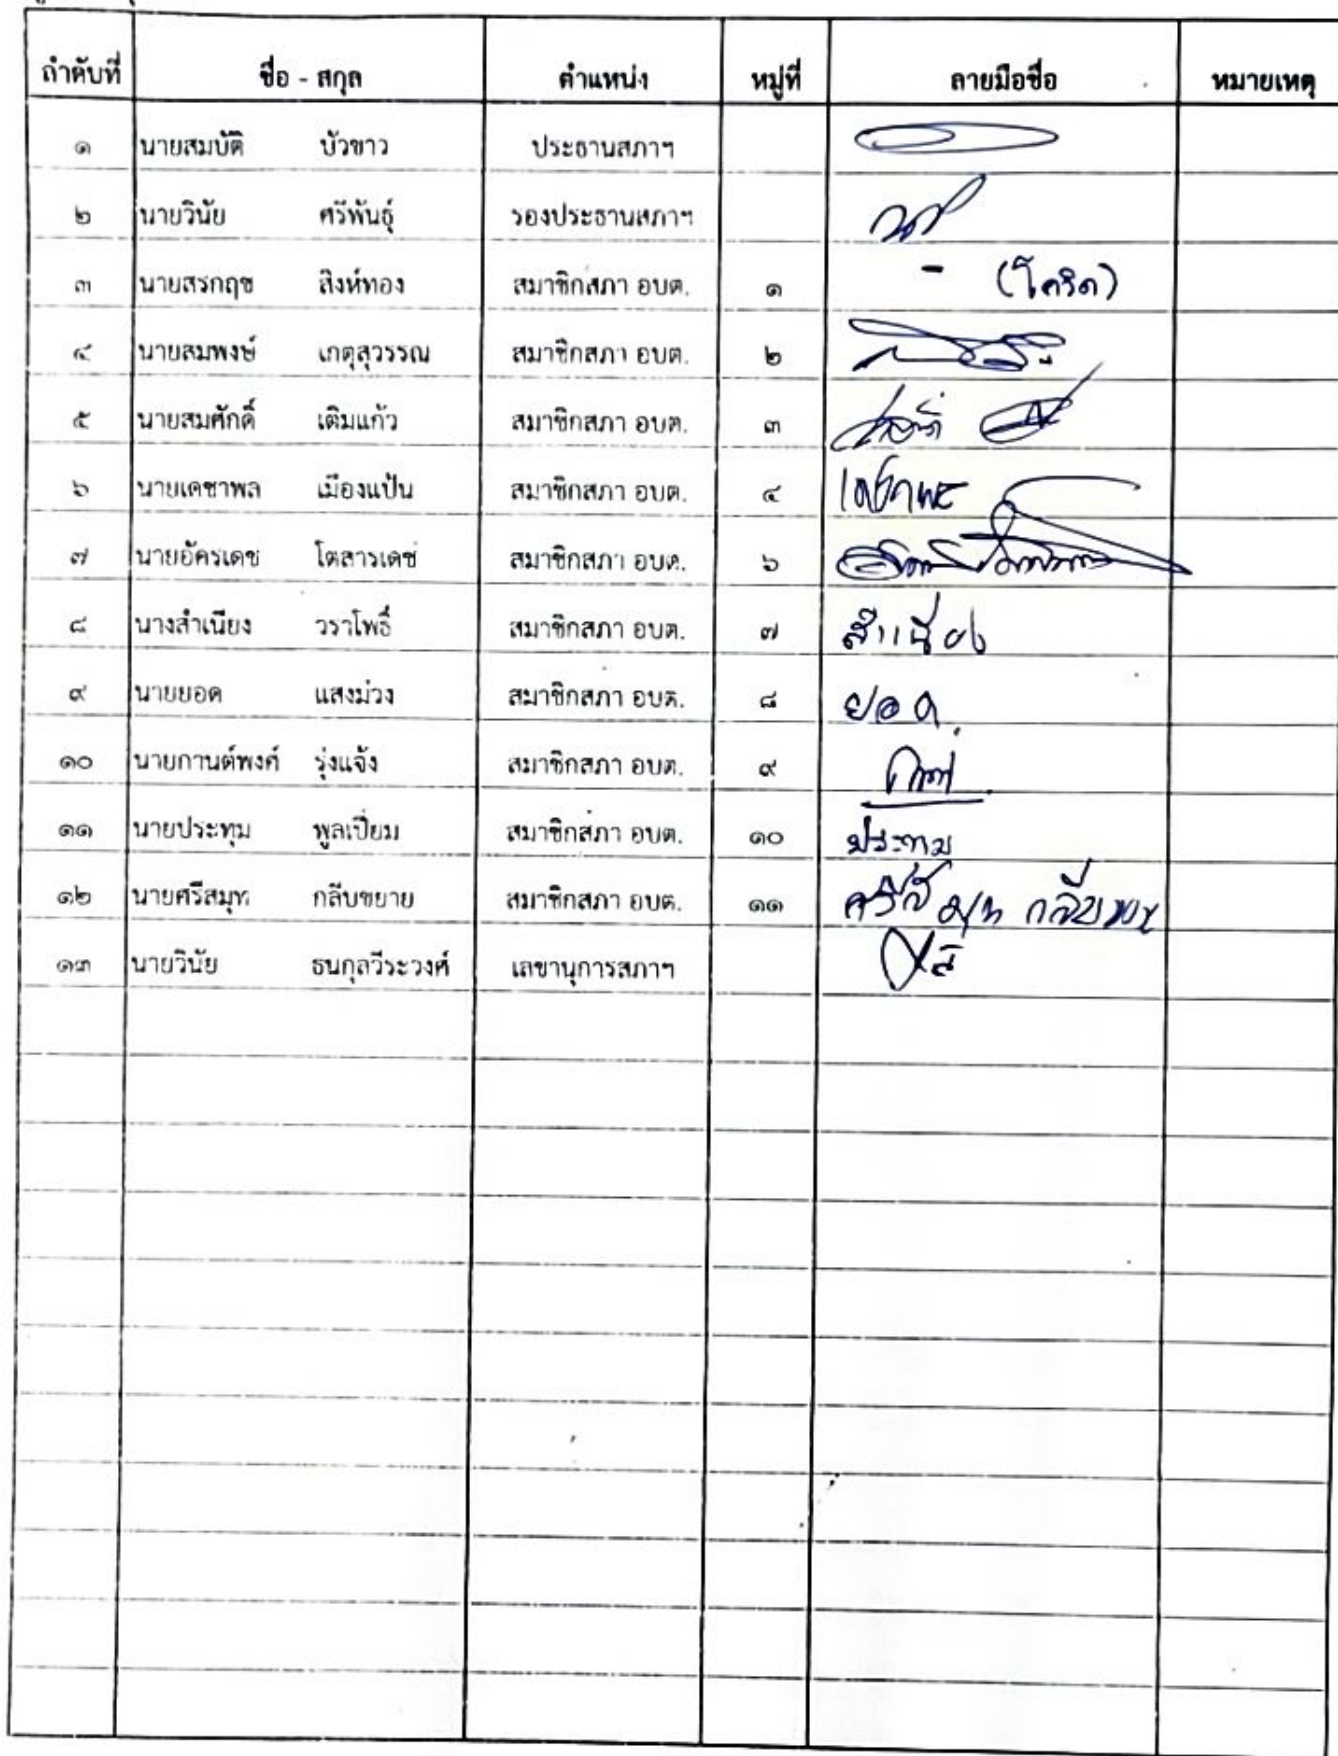 ลำดับที่ ชื่อ - สกุล ตำแหน่ง หมู่ที่ ลายมือชื่อ หมายเหตุ
๑ นายสมบัติ บัวขาว ประธานสภาฯ
๒ นายวินัย ศรีพันธุ์ รองประธานสภาฯ
๓ นายสรกฤช สิงห์ทอง สมาชิกสภา อบต. ๑ - (โควิด)
๔ นายสมพงษ์ เกตุสุวรรณ สมาชิกสภา อบต. ๒
๕ นายสมศักดิ์ เติมแก้ว สมาชิกสภา อบต. ๓
๖ นายเดชาพล เมืองแป้น สมาชิกสภา อบต. ๔
๗ นายอัครเดช โตสารเดช สมาชิกสภา อบต. ๖
๘ นางสำเนียง วราโพธิ์ สมาชิกสภา อบต. ๗ สำเนียง
๙ นายยอด แสงม่วง สมาชิกสภา อบต. ๘ ยอด
๑๐ นายกานต์พงศ์ รุ่งแจ้ง สมาชิกสภา อบต. ๙
๑๑ นายประทุม พูลเปี่ยม สมาชิกสภา อบต. ๑๐ ประทุม
๑๒ นายศรีสมุท กลีบขยาย สมาชิกสภา อบต. ๑๑ ศรีสมุท กลีบขยาย
๑๓ นายวินัย ธนกุลวีระวงศ์ เลขานุการสภาฯ